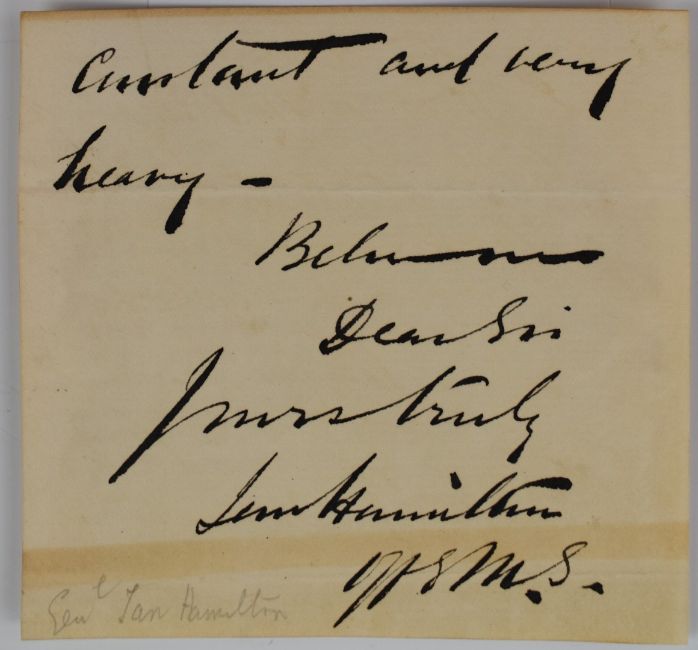 constant and very
heavy –
Believe me
Dear Sir
Yours truly
Ian Hamilton
M.S.
Genl Ian Hamilton